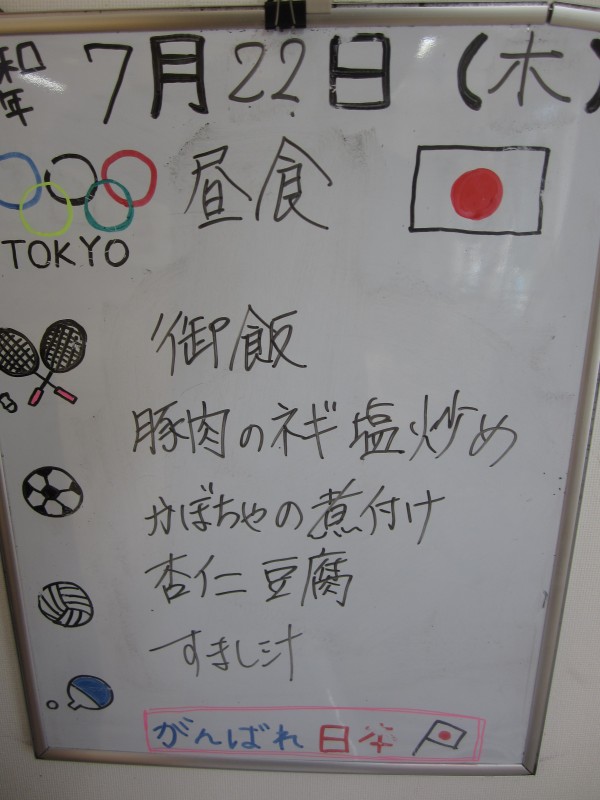 和 年 7月22日(木)
昼食
TOKYO
御飯
豚肉のネギ塩炒め
かぼちゃの煮付け
杏仁豆腐
すまし汁
がんばれ日本